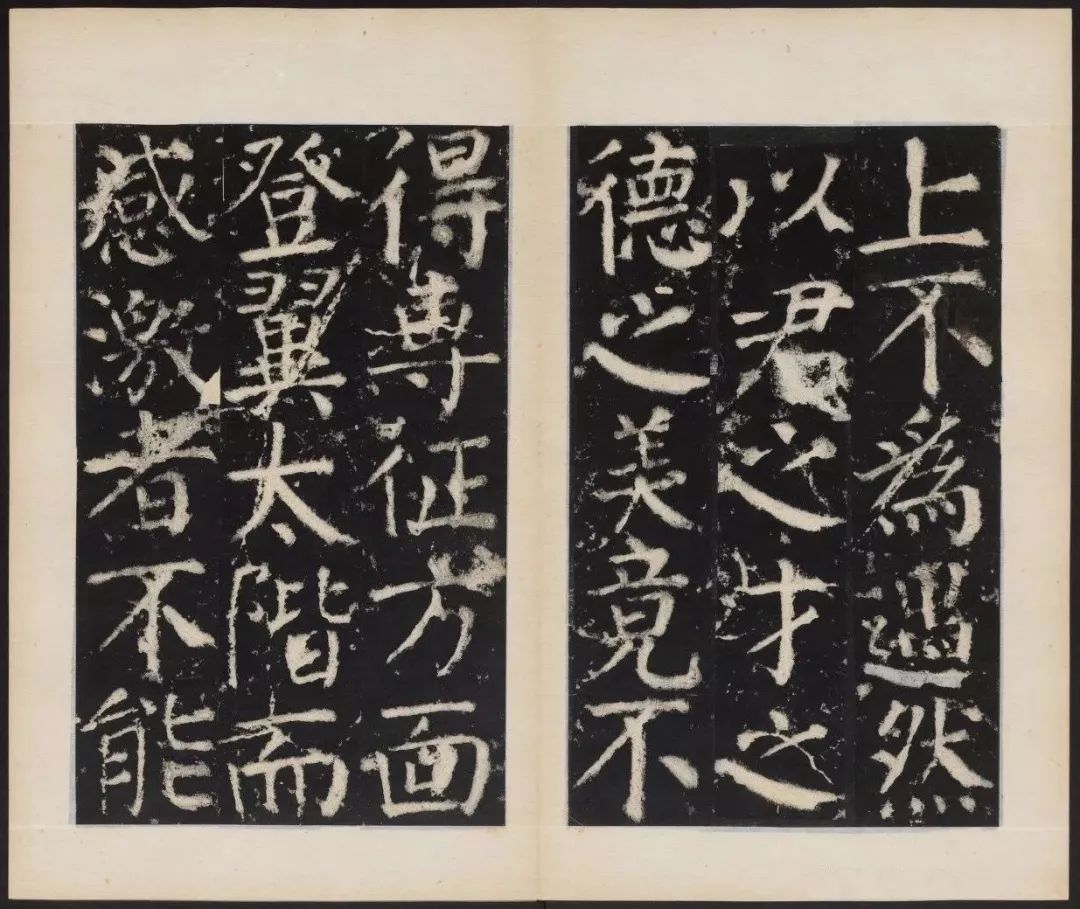 上不為過然
以君之才之
德之美竟不
得專征方面
登翼太階而
感激者不能